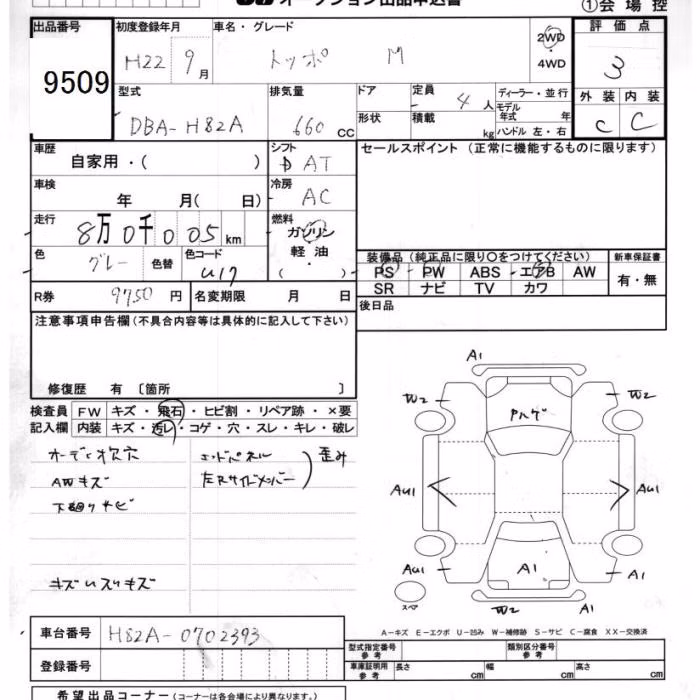 オークション出品申込書
①会場控
出品番号 初度登録年月 車名・グレード 評価点
9509
H22 9月 トッポ M
2WD
4WD
3
型式 排気量 ドア 定員 ディーラー・並行
4人 モデル年式 年
形状 積載 kg ハンドル 左・右
外装 内装
DBA-H82A 660cc
C C
車歴 シフト セールスポイント(正常に機能するものに限ります)
自家用・( ) D AT
車検 冷房
年 月( 日) AC
走行 燃料
8万0千005km ガソリン
軽油
( )
色 色替 色コード
グレー U17
装備品(純正品に限り○をつけてください) 新車保証書
PS PW ABS エアB AW 有・無
SR ナビ TV カワ
R券 9750円 名変期限 月 日
後日品
注意事項申告欄(不具合内容等は具体的に記入して下さい)
修復歴 有〔箇所 〕
検査員 FW キズ・飛石・ヒビ割・リペア跡・×要
記入欄 内装 キズ・汚レ・コゲ・穴・スレ・キレ・破レ
オーディオ欠穴 エンドパネル
AWキズ 左Rサイドメンバー 歪み
下廻りサビ
キズUスリキズ
A1
W2 W2
Pハゲ
AU1 AU1
AU1 A1 A1
スペア W2 A1
A-キズ E-エクボ U-凹み W-補修跡 S-サビ C-腐食 XX-交換済
車台番号 H82A-0702393
登録番号
型式指定番号 参考 類別区分番号 参考
車庫証明用 参考 長さ cm 幅 cm 高さ cm
希望出品コーナー(コーナーは各会場により異なります。)